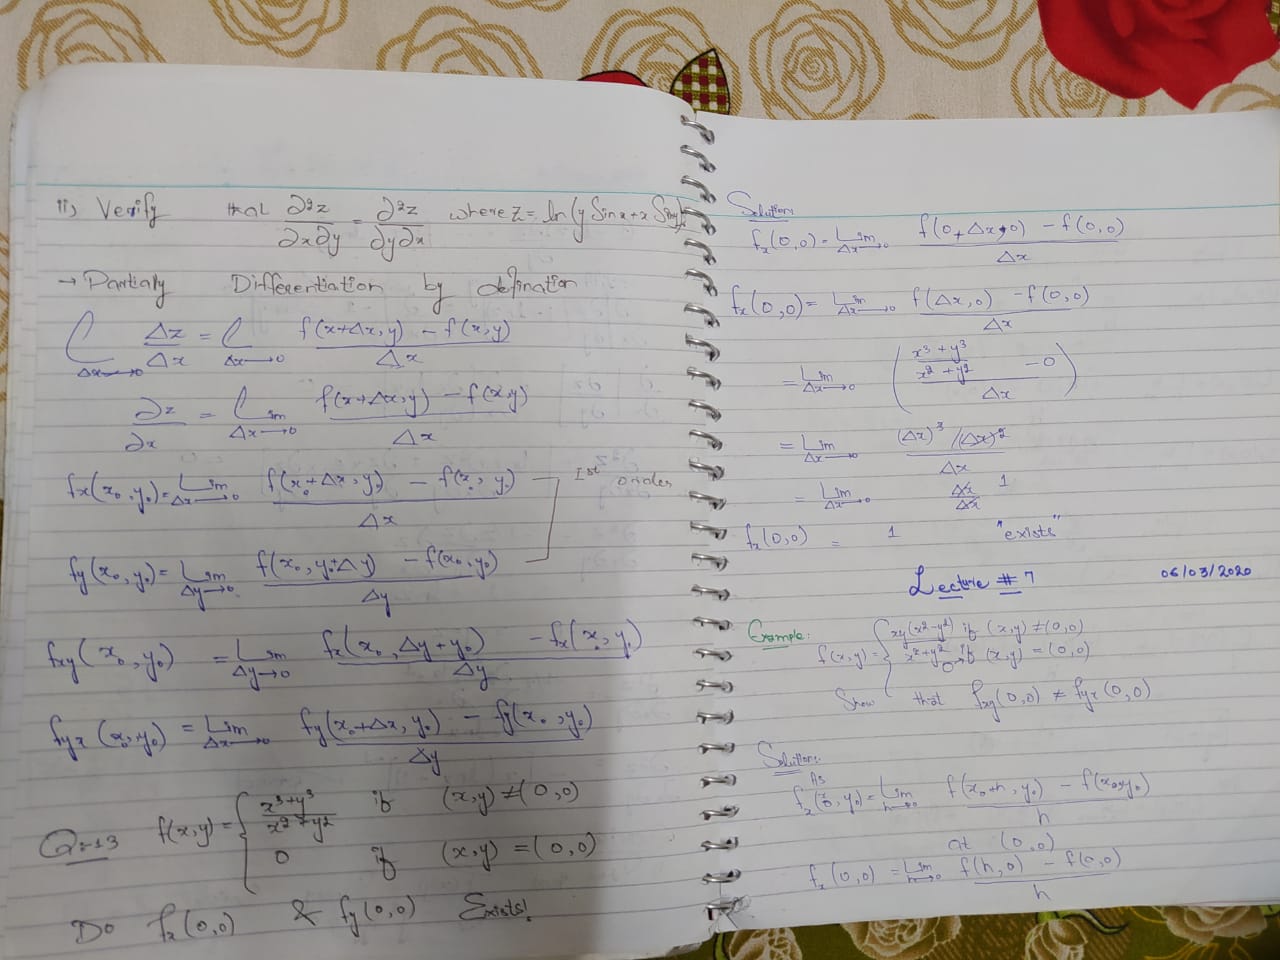 ii) Verify that ∂²z/∂x∂y = ∂²z/∂y∂x where z = ln(y Sinx + x Siny)
→ Partialy Differentiation by defination
L Δx→0 Δz/Δx = L Δx→0 f(x+Δx, y) - f(x, y) / Δx
∂z/∂x = Lim Δx→0 f(x+Δx, y) - f(x, y) / Δx
fx(x₀, y₀) = Lim Δx→0 f(x₀+Δx, y₀) - f(x₀, y₀) / Δx
Ist order
fy(x₀, y₀) = Lim Δy→0 f(x₀, y₀+Δy) - f(x₀, y₀) / Δy
fxy(x₀, y₀) = Lim Δy→0 fx(x₀, Δy+y₀) - fx(x₀, y₀) / Δy
fyx(x₀, y₀) = Lim Δx→0 fy(x₀+Δx, y₀) - fy(x₀, y₀) / Δy
Q:-13 f(x,y) = { x³+y³ / x²+y² if (x,y) ≠ (0,0)
0 if (x,y) = (0,0)
Do fx(0,0) & fy(0,0) Exists!
Solution:
fx(0,0) = Lim Δx→0 f(0+Δx, 0) - f(0,0) / Δx
fx(0,0) = Lim Δx→0 f(Δx, 0) - f(0,0) / Δx
= Lim Δx→0 ( x³+y³ / x²+y² - 0 / Δx )
= Lim Δx→0 (Δx)³/(Δx)² / Δx
= Lim Δx→0 Δx/Δx 1
fx(0,0) = 1 "exists"
Lecture # 7 06/03/2020
Example:
f(x,y) = { xy(x²-y²) / x²+y² if (x,y) ≠ (0,0)
0 if (x,y) = (0,0)
Show that fxy(0,0) ≠ fyx(0,0)
Solution:
As
fx(x₀, y₀) = Lim h→0 f(x₀+h, y₀) - f(x₀, y₀) / h
at (0,0)
fx(0,0) = Lim h→0 f(h,0) - f(0,0) / h